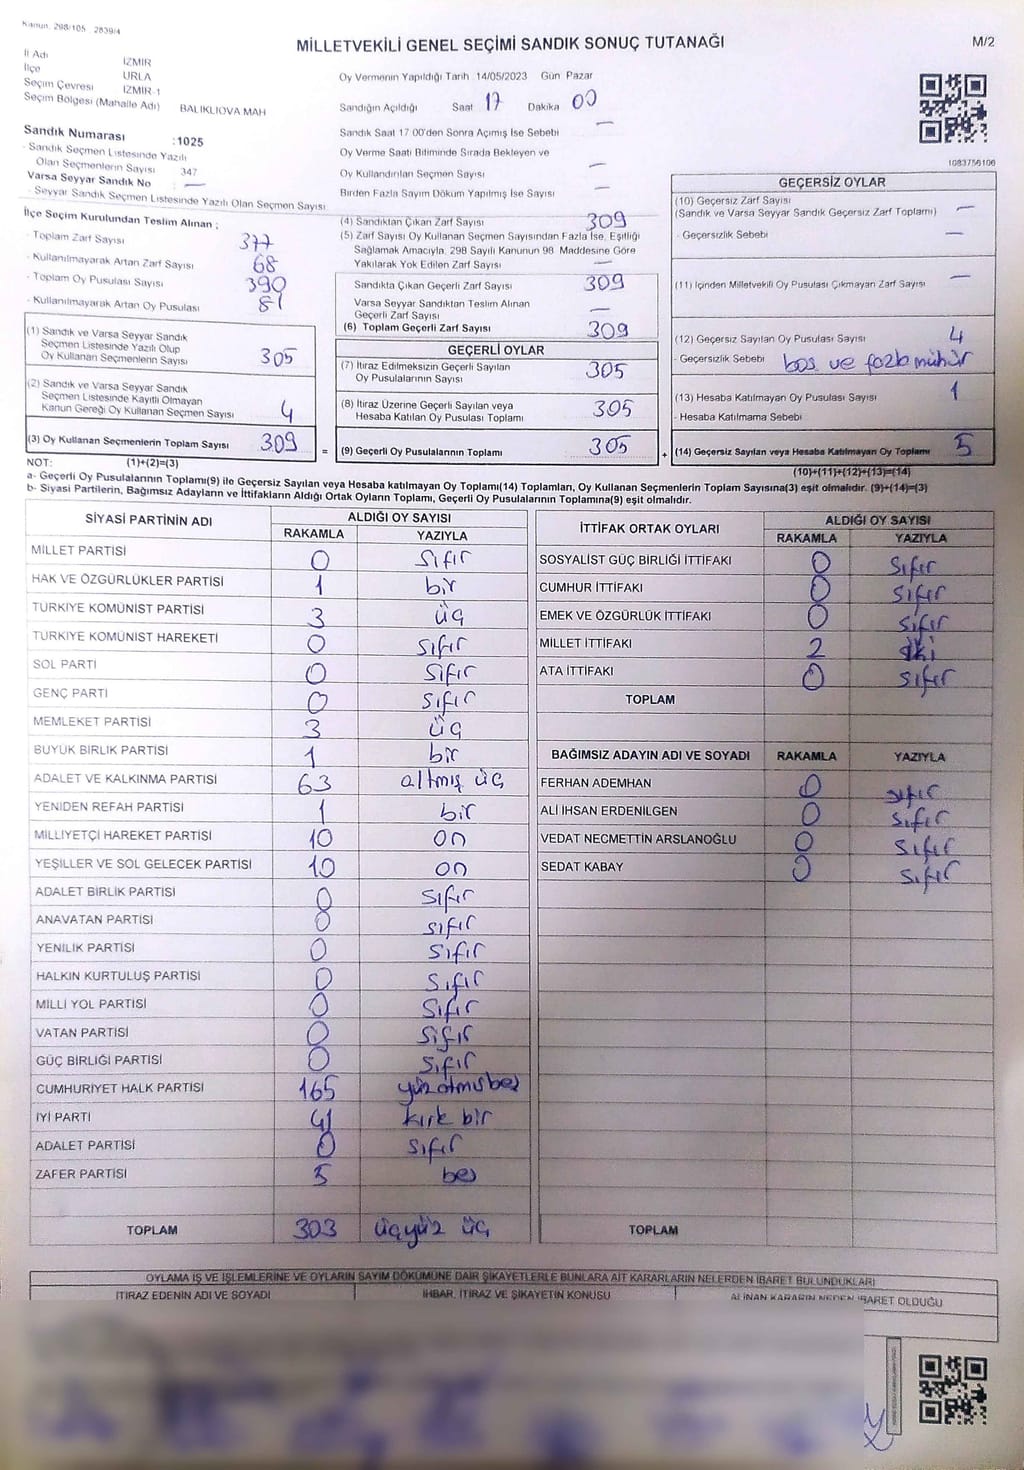 Kanun: 298/105 2839/4
MİLLETVEKİLİ GENEL SEÇİMİ SANDIK SONUÇ TUTANAĞI
M/2
İl Adı İZMİR
İlçe URLA
Seçim Çevresi İZMİR-1
Seçim Bölgesi (Mahalle Adı) BALIKLIOVA MAH
Sandık Numarası :1025
- Sandık Seçmen Listesinde Yazılı
Olan Seçmenlerin Sayısı 347
Varsa Seyyar Sandık No : —
- Seyyar Sandık Seçmen Listesinde Yazılı Olan Seçmen Sayısı
Oy Vermenin Yapıldığı Tarih 14/05/2023 Gün Pazar
Sandığın Açıldığı Saat 17 Dakika 00
Sandık Saat 17 00'den Sonra Açımış İse Sebebi —
Oy Verme Saati Bitiminde Sırada Bekleyen ve
Oy Kullandırılan Seçmen Sayısı —
Birden Fazla Sayım Döküm Yapılmış İse Sayısı —
1083756106
İlçe Seçim Kurulundan Teslim Alınan ;
- Toplam Zarf Sayısı 377
- Kullanılmayarak Artan Zarf Sayısı 68
- Toplam Oy Pusulası Sayısı 390
- Kullanılmayarak Artan Oy Pusulası 81
(1) Sandık ve Varsa Seyyar Sandık
Seçmen Listesinde Yazılı Olup
Oy Kullanan Seçmenlerin Sayısı 305
(2) Sandık ve Varsa Seyyar Sandık
Seçmen Listesinde Kayıtlı Olmayan
Kanun Gereği Oy Kullanan Seçmen Sayısı 4
(3) Oy Kullanan Seçmenlerin Toplam Sayısı 309
(4) Sandıktan Çıkan Zarf Sayısı 309
(5) Zarf Sayısı Oy Kullanan Seçmen Sayısından Fazla İse, Eşitliği
Sağlamak Amacıyla, 298 Sayılı Kanunun 98. Maddesine Göre
Yakılarak Yok Edilen Zarf Sayısı —
Sandıkta Çıkan Geçerli Zarf Sayısı 309
Varsa Seyyar Sandıktan Teslim Alınan
Geçerli Zarf Sayısı —
(6) Toplam Geçerli Zarf Sayısı 309
GEÇERLİ OYLAR
(7) İtiraz Edilmeksizin Geçerli Sayılan
Oy Pusulalarının Sayısı 305
(8) İtiraz Üzerine Geçerli Sayılan veya
Hesaba Katılan Oy Pusulası Toplamı 305
= (9) Geçerli Oy Pusulalarının Toplamı 305
GEÇERSİZ OYLAR
(10) Geçersiz Zarf Sayısı
(Sandık ve Varsa Seyyar Sandık Geçersiz Zarf Toplamı) —
- Geçersizlik Sebebi —
(11) İçinden Milletvekili Oy Pusulası Çıkmayan Zarf Sayısı —
(12) Geçersiz Sayılan Oy Pusulası Sayısı 4
- Geçersizlik Sebebi boş ve fazla mühür
(13) Hesaba Katılmayan Oy Pusulası Sayısı 1
- Hesaba Katılmama Sebebi
+ (14) Geçersiz Sayılan veya Hesaba Katılmayan Oy Toplamı 5
NOT: (1)+(2)=(3)
(10)+(11)+(12)+(13)=(14)
a- Geçerli Oy Pusulalarının Toplamı(9) ile Geçersiz Sayılan veya Hesaba katılmayan Oy Toplamı(14) Toplamları, Oy Kullanan Seçmenlerin Toplam Sayısına(3) eşit olmalıdır. (9)+(14)=(3)
b- Siyasi Partilerin, Bağımsız Adayların ve İttifakların Aldığı Ortak Oyların Toplamı, Geçerli Oy Pusulalarının Toplamına(9) eşit olmalıdır.
SİYASİ PARTİNİN ADI ALDIĞI OY SAYISI
RAKAMLA YAZIYLA
MİLLET PARTİSİ 0 sıfır
HAK VE ÖZGÜRLÜKLER PARTİSİ 1 bir
TÜRKİYE KOMÜNİST PARTİSİ 3 üç
TÜRKİYE KOMÜNİST HAREKETİ 0 sıfır
SOL PARTİ 0 sıfır
GENÇ PARTİ 0 sıfır
MEMLEKET PARTİSİ 3 üç
BÜYÜK BİRLİK PARTİSİ 1 bir
ADALET VE KALKINMA PARTİSİ 63 altmış üç
YENİDEN REFAH PARTİSİ 1 bir
MİLLİYETÇİ HAREKET PARTİSİ 10 on
YEŞİLLER VE SOL GELECEK PARTİSİ 10 on
ADALET BİRLİK PARTİSİ 0 sıfır
ANAVATAN PARTİSİ 0 sıfır
YENİLİK PARTİSİ 0 sıfır
HALKIN KURTULUŞ PARTİSİ 0 sıfır
MİLLİ YOL PARTİSİ 0 sıfır
VATAN PARTİSİ 0 sıfır
GÜÇ BİRLİĞİ PARTİSİ 0 sıfır
CUMHURİYET HALK PARTİSİ 165 yüz atmış beş
İYİ PARTİ 41 kırk bir
ADALET PARTİSİ 0 sıfır
ZAFER PARTİSİ 5 beş
TOPLAM 303 üçyüz üç
İTTİFAK ORTAK OYLARI ALDIĞI OY SAYISI
RAKAMLA YAZIYLA
SOSYALİST GÜÇ BİRLİĞİ İTTİFAKI 0 sıfır
CUMHUR İTTİFAKI 0 sıfır
EMEK VE ÖZGÜRLÜK İTTİFAKI 0 sıfır
MİLLET İTTİFAKI 2 iki
ATA İTTİFAKI 0 sıfır
TOPLAM
BAĞIMSIZ ADAYIN ADI VE SOYADI RAKAMLA YAZIYLA
FERHAN ADEMHAN 0 sıfır
ALİ İHSAN ERDENİLGEN 0 sıfır
VEDAT NECMETTİN ARSLANOĞLU 0 sıfır
SEDAT KABAY 0 sıfır
TOPLAM
OYLAMA İŞ VE İŞLEMLERİNE VE OYLARIN SAYIM DÖKÜMÜNE DAİR ŞİKAYETLERLE BUNLARA AİT KARARLARIN NELERDEN İBARET BULUNDUKLARI
İTİRAZ EDENİN ADI VE SOYADI İHBAR, İTİRAZ VE ŞİKAYETİN KONUSU ALINAN KARARIN NEDEN İBARET OLDUĞU